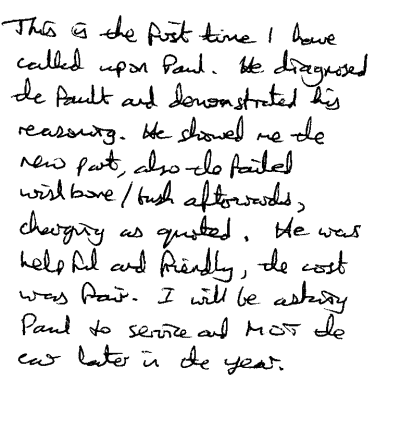 This is the first time I have
called upon Paul. He diagnosed
the fault and demonstrated his
reasoning. He showed me the
new part, also the failed
wishbone/bush afterwards,
charging as quoted. He was
helpful and friendly, the cost
was fair. I will be asking
Paul to service and MOT the
car later in the year.